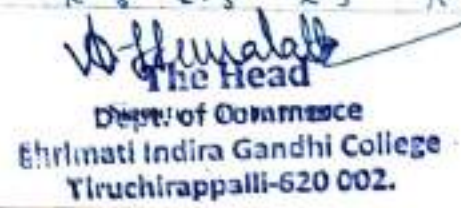 The Head
Dept. of Commerce
Shrimati Indira Gandhi College
Tiruchirappalli-620 002.